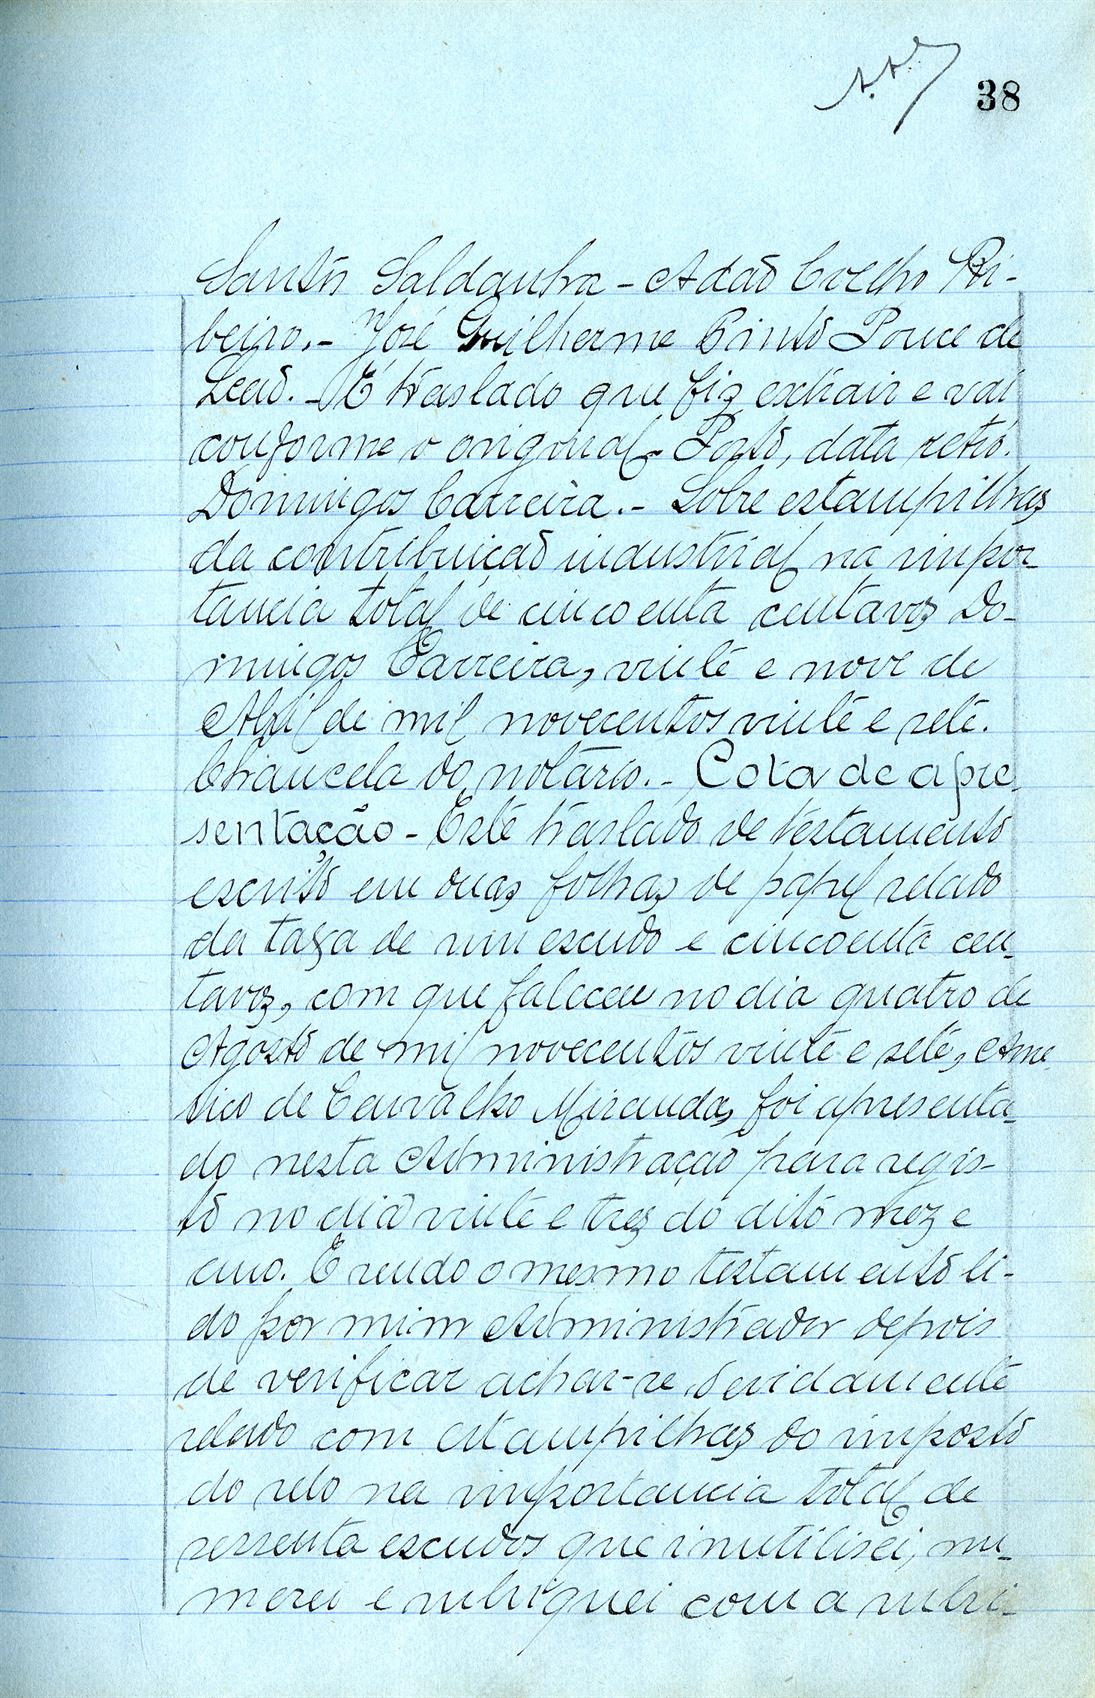 38
Santos Saldanha - Adão Coelho Ri-
beiro.- José Guilherme Pinto Ponce de
Leão. - É traslado que fiz extrair e vai
conforme o original. Porto, data retro.
Domingos Carreira. - Sobre estampilhas
da contribuição industrial na impor-
tancia total de cincoenta centavos Do-
mingos Carreira, vinte e nove de
Abril de mil novecentos vinte e sete.
Chancela do notário. - Cota de apre-
sentação - Este traslado de testamento
escrito em duas folhas de papel selado
da taxa de um escudo e cincoenta cen-
tavos, com que faleceu no dia quatro de
Agosto de mil novecentos vinte e sete, Ame-
rico de Carvalho Miranda, foi apresenta-
do nesta Administração para regis-
to no dia vinte e tres do dito mez e
ano. E sendo o mesmo testamento li-
do por mim Administrador depois
de verificar achar-se devidamente
selado com estampilhas do imposto
do selo na importancia total de
sessenta escudos que inutilisei, nu-
merei e rubriquei com a rubri-